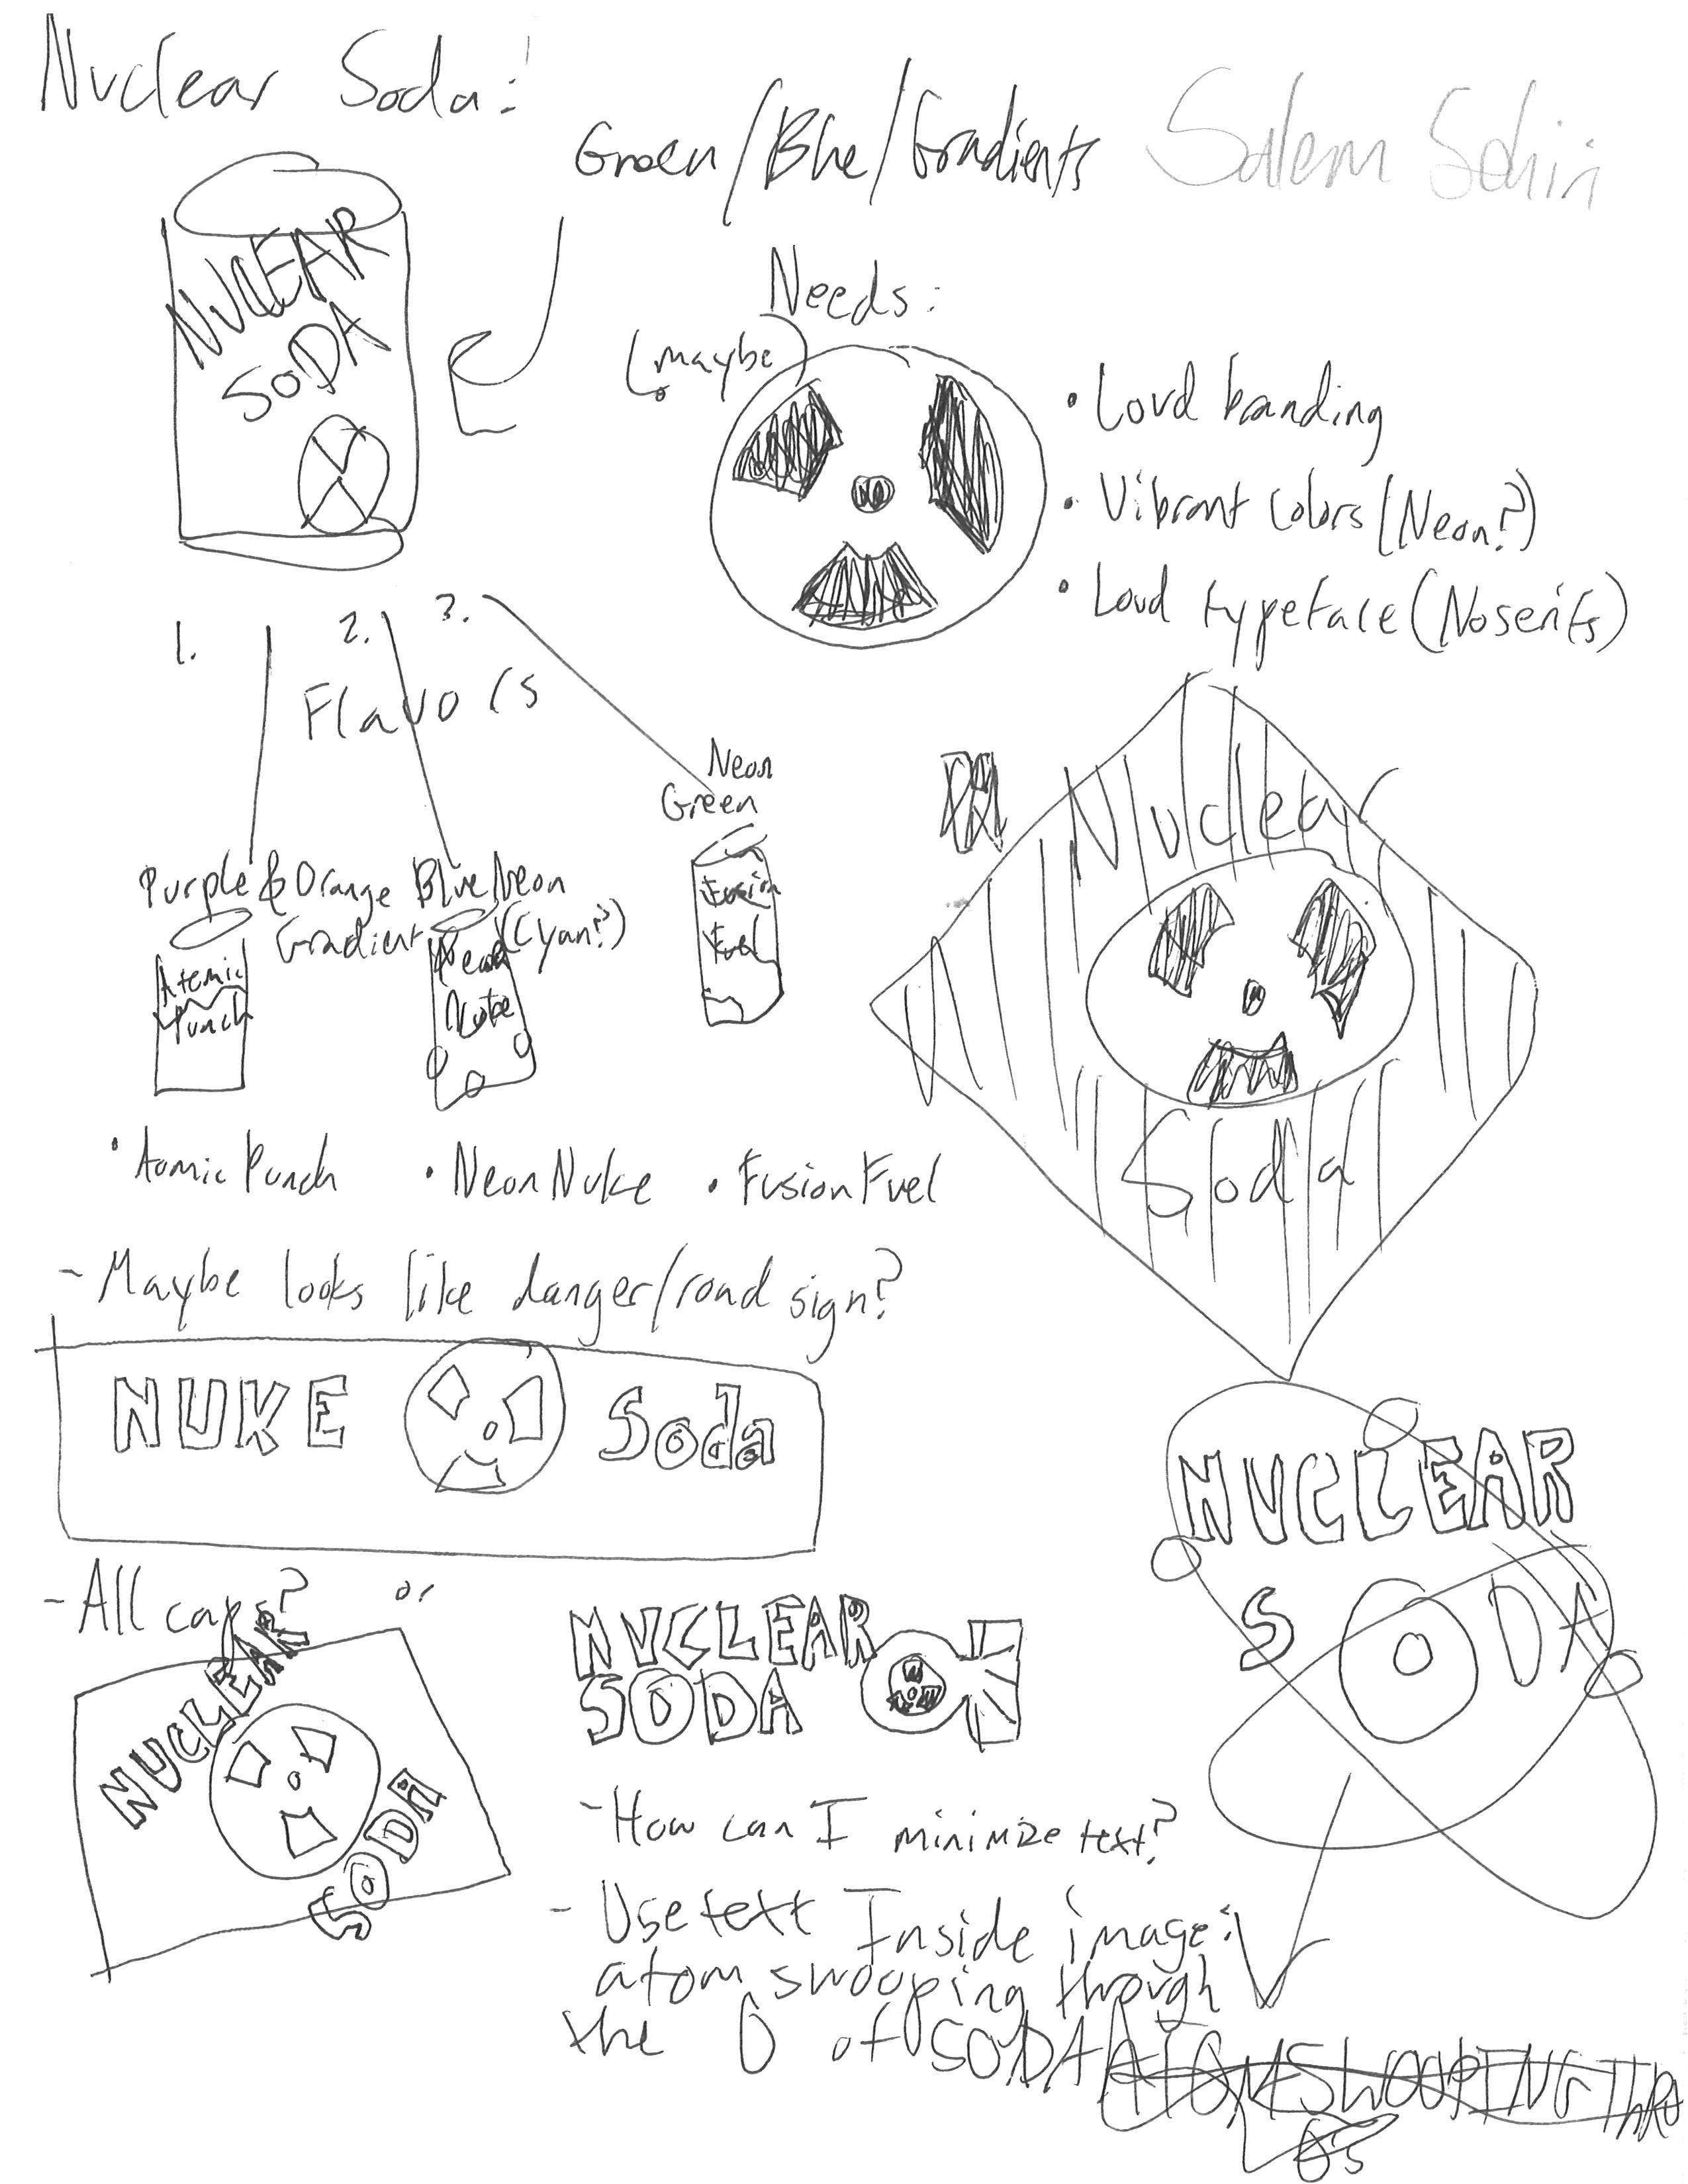 Nuclear Soda:
Green/Blue/Gradients
Salem
NUCLEAR
SODA
Needs:
(maybe)
• Loud branding
• Vibrant colors (Neon?)
• Loud typeface (No serifs)
1.
2.
3.
Flavors
Neon
Green
Purple & Orange
Gradient
Blue Neon
(Cyan?)
Atomic
Punch
Neon
Nuke
Fusion
Fuel
Nuclear
Soda
• Atomic Punch
• Neon Nuke
• Fusion Fuel
- Maybe looks like danger/road sign?
NUKE Soda
NUCLEAR
SODA
- All caps?
or
NUCLEAR
SODA
NUCLEAR
SODA
- How can I minimize text?
- Use text Inside image:
atom swooping through
the O of SODA